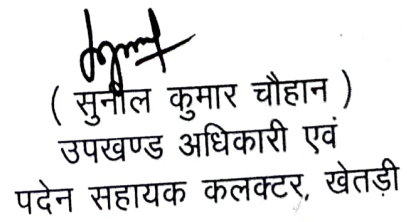 ( सुनील कुमार चौहान )
उपखण्ड अधिकारी एवं
पदेन सहायक कलक्टर, खेतड़ी